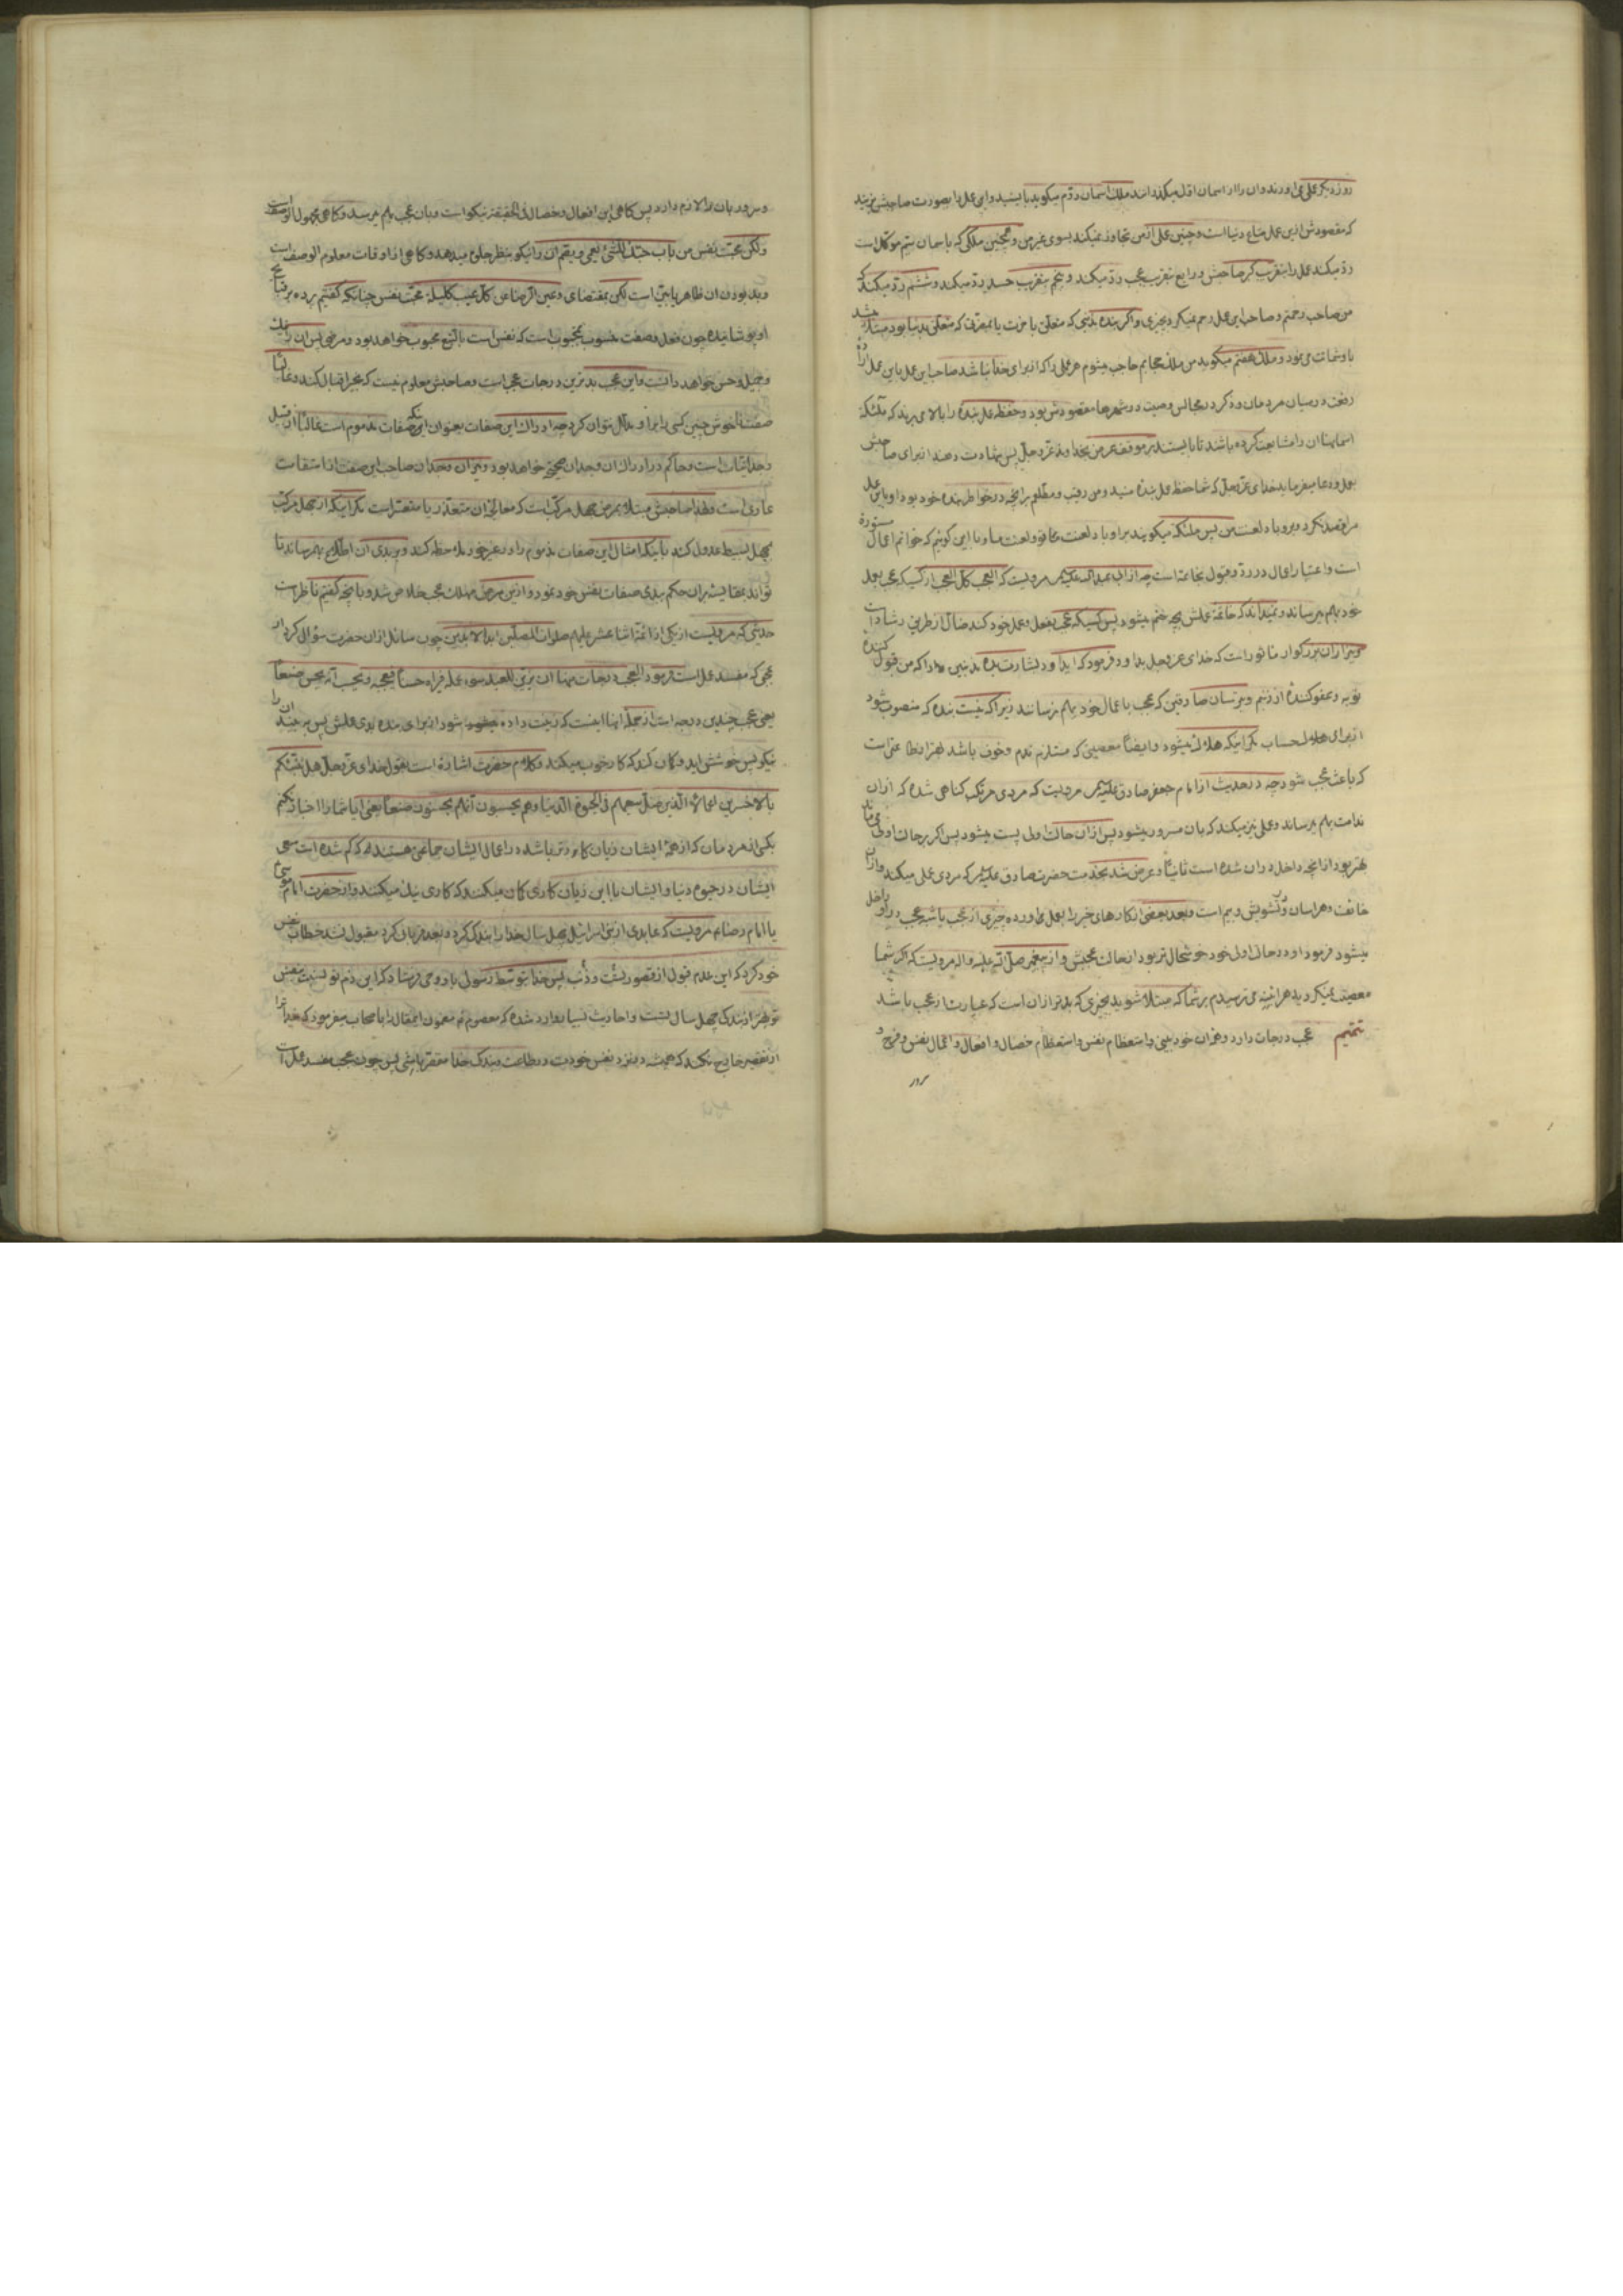 روز دیگر عملی می اورند و ان را از اسمان اول میگذرانند ملک اسمان دوم میگوید بایستید و این عمل را بصورت صاحبش بزنید
که مقصودش ازین عمل متاع دنیا است و چنین عملی از من تجاوز نمیکند بسوی غیر من و همچنین ملکی که باسمان سیم موکل است
رد میکند عمل را بتقریب کبر صاحبش و رابع بتقریب عجب رد میکند و پنجم بتقریب حسد رد میکند و ششم رد میکند که
من صاحب رحمتم و صاحب این عمل رحم نمیکرد بچیزی و اگر بنده بذنبی که متعلق باخرت یا بمضرتی که متعلق بدنیا بود مبتلا میشد
باو شماتت می نمود و ملک هفتم میگوید من ملک حجابم حاجب میشوم هر عملی را که از برای خدا نباشد صاحب این عمل باین عمل اراده
رفعت در میان مردمان و ذکر در مجالس وصیت در شهرها مقصودش بود و حفظه عمل بنده را بالا می برند که ملئکه
اسمانها ان را مشایعت کرده باشند تا بایستند بر موقف عرض بخداوند عز و جل پس شهادت دهند از برای صاحبش
بعمل و دعا میفرماید خدای عز و جل که شما حفظه عمل بنده منید و من رقیب و مطلعم برانچه در خواطر بنده خود بود او باین عمل
مرا قصد نکرد و برو باد لعنت من پس ملئکه میگویند براو باد لعنت تو و لعنت ما و با این گوئیم که خواتم اعمال مستوره
است و اعتبار اعمال در رد و قبول بخاتمه است چه از ابی عبدالله علیه السلم مرویست که العجب کل العجب از کسیکه عجب بعمل
خود بهم میرساند و نمیداند که خاتمه عملش بچه ختم میشود پس کسیکه عجب بفعل و عمل خود کند ضال از طریق رشاد است
و نیز از ان بزرگوار ماثور است که خدای عز و جل بداود فرمود که ای داود بشارت بده مذنبین را که من قبول کننده
توبه و عفو کننده از ذنبم و بترسان صادقین که عجب باعمال خود بهم نرسانند زیرا که نیست بنده که منصوب شود
از برای حساب مگر اینکه هلاک میشود و ایضا معصیتی که مستلزم ندم و خوف باشد بهتر از طاعتی است
که باعث عجب شود چه در حدیث از امام جعفر صادق علیه السلم مرویست که مردی مرتکب گناهی شده که از ان
ندامت بهم میرساند و عملی نیز میکند که بان مسرور میشود پس از ان حالت اولی پست میشود پس اگر بر حالت اولی می ماند
بهتر بود از انچه داخل در ان شده است ثانیا و عرض شد بخدمت حضرت صادق علیه السلم که مردی عملی میکند و از ان
خائف و هراسان و بتشویش و بیم است و بعد بعضی از کارهای خیر را بعمل می اورده چیزی از عجب یا شبه عجب در او داخل
میشود فرمود او در حال اولی خود خوشحال تر بود از حالت عجبش و از پیغمبر صلی الله علیه و اله مرویست که اگر شما
معصیت نمیکردید هراینه می ترسیدم بر شما که مبتلا شوید بچیزی که بدتر از ان است که عبارت از عجب باشد
تتمیم عجب درجات دارد و هم ان خود بینی و استعظام نفس و استعظام خصال و افعال و اعمال نفس و فرح و
سرور
و سرور بان را لازم دارد پس گاهی این افعال و خصال فی الحقیقه نیکو است و بان عجب بهم میرسد و گاهی مجهول الوصف است
ولکن محبت نفس من باب حبک للشئ یعمی و یصم ان را نیکو بنظر جلوه میدهد و گاهی از اوقات معلوم الوصف است
و بد بودن ان ظاهر یا بین است لکن بمقتضای و عین الرضا عن کل عیب کلیلة محبت نفس چنانکه گفتیم پرده بر قبایح
او پوشانیده چون فعل و صفت منسوب بمحبوب است که نفس است بالتبع محبوب خواهد بود و مرضی پس ان را نیک
و جمیل و حسن خواهد دانست و این عجب بدترین درجات عجب است و صاحبش معلوم نیست که بخیر اقبال کند و علاج
صفت ناخوش چنین کسی را براو بدلال نتوان کرد چه ادراک این صفات بعنوان اینکه صفات مذموم است غالبا از قبیل
وجدانیات است و حاکم در ادراک ان وجدان صحیح خواهد بود و میزان وجدان صاحب این صفت از استقامت
عاری است و لهذا صاحبش مبتلا بمرض جهل مرکب است که معالجه ان متعذر یا متعسر است مگر اینکه از جهل مرکب
بجهل بسیط عدول کند باینکه امثال این صفات مذموم را در غیر خود ملاحظه کند و بر بدی ان اطلاع بهم رساند تا
تواند بمقایسه بران حکم ببدی صفات نفس خود نمود و ازین مرض مهلک عجب خلاص شد و بانچه گفتیم ناظر است
حدیثی که مرویست از یکی از ائمه اثنا عشر علیهم صلوات المصلین ابد الابدین چون سائل از ان حضرت سؤال کرد از
عجبی که مفسد عمل است فرمود العجب درجات منها ان یزین للعبد سوء عمله فیراه حسنا فیعجبه و یحسب انه یحسن صنعا
یعنی عجب چندین درجه است از جمله انها اینست که زینت داده شود از برای بنده بدی عملش پس بیند ان را
نیکو پس خوشش اید و گمان کند که کار خوب میکند و کلام حضرت اشاره است بقول خدای عز و جل هل ننبئکم
بالاخسرین اعمالا الذین ضل سعیهم فی الحیوة الدنیا و هم یحسبون انهم یحسنون صنعا یعنی ایا شما را اخبار بکنیم
بکسی از مردمان که از همه ایشان زیان کارتر باشد در اعمال ایشان جماعتی هستند که گم شده است سعی
ایشان در حیوة دنیا و ایشان با این زیان کاری گمان میکنند که کاری نیک میکنند و از حضرت امام موسی
یا امام رضا مرویست که عابدی از بنی اسرائیل چهل سال خدا را بندگی کرد و بعد قربان کرد مقبول نشد خطاب بنفس
خود کرد که این عدم قبول از قصور تست و ذنب پس خدا بتوسط رسولی باو وحی فرستاد که این ذم تو نسبت بنفس
تو بهتر از بندگی چهل سال تست و احادیث بسیار وارد شده که معصوم بمضمون این مقال را باصحاب میفرمود که خدا ترا
از تقصیر خارج نکند که همیشه در نزد نفس خودت در طاعت و بندگی خدا مقصر باشی پس چون عجب مفسد عمل است